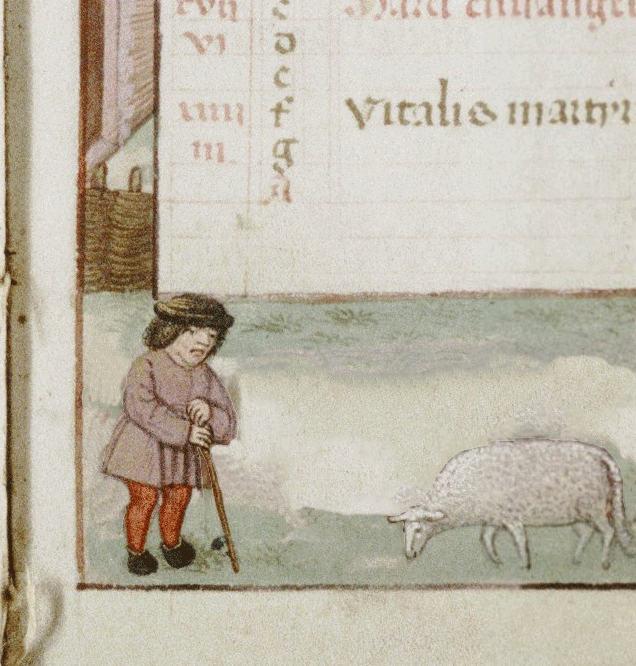 xvii c Marci euuangeli
vi d
e
xiiii f Vitalis martyr
iii g
A